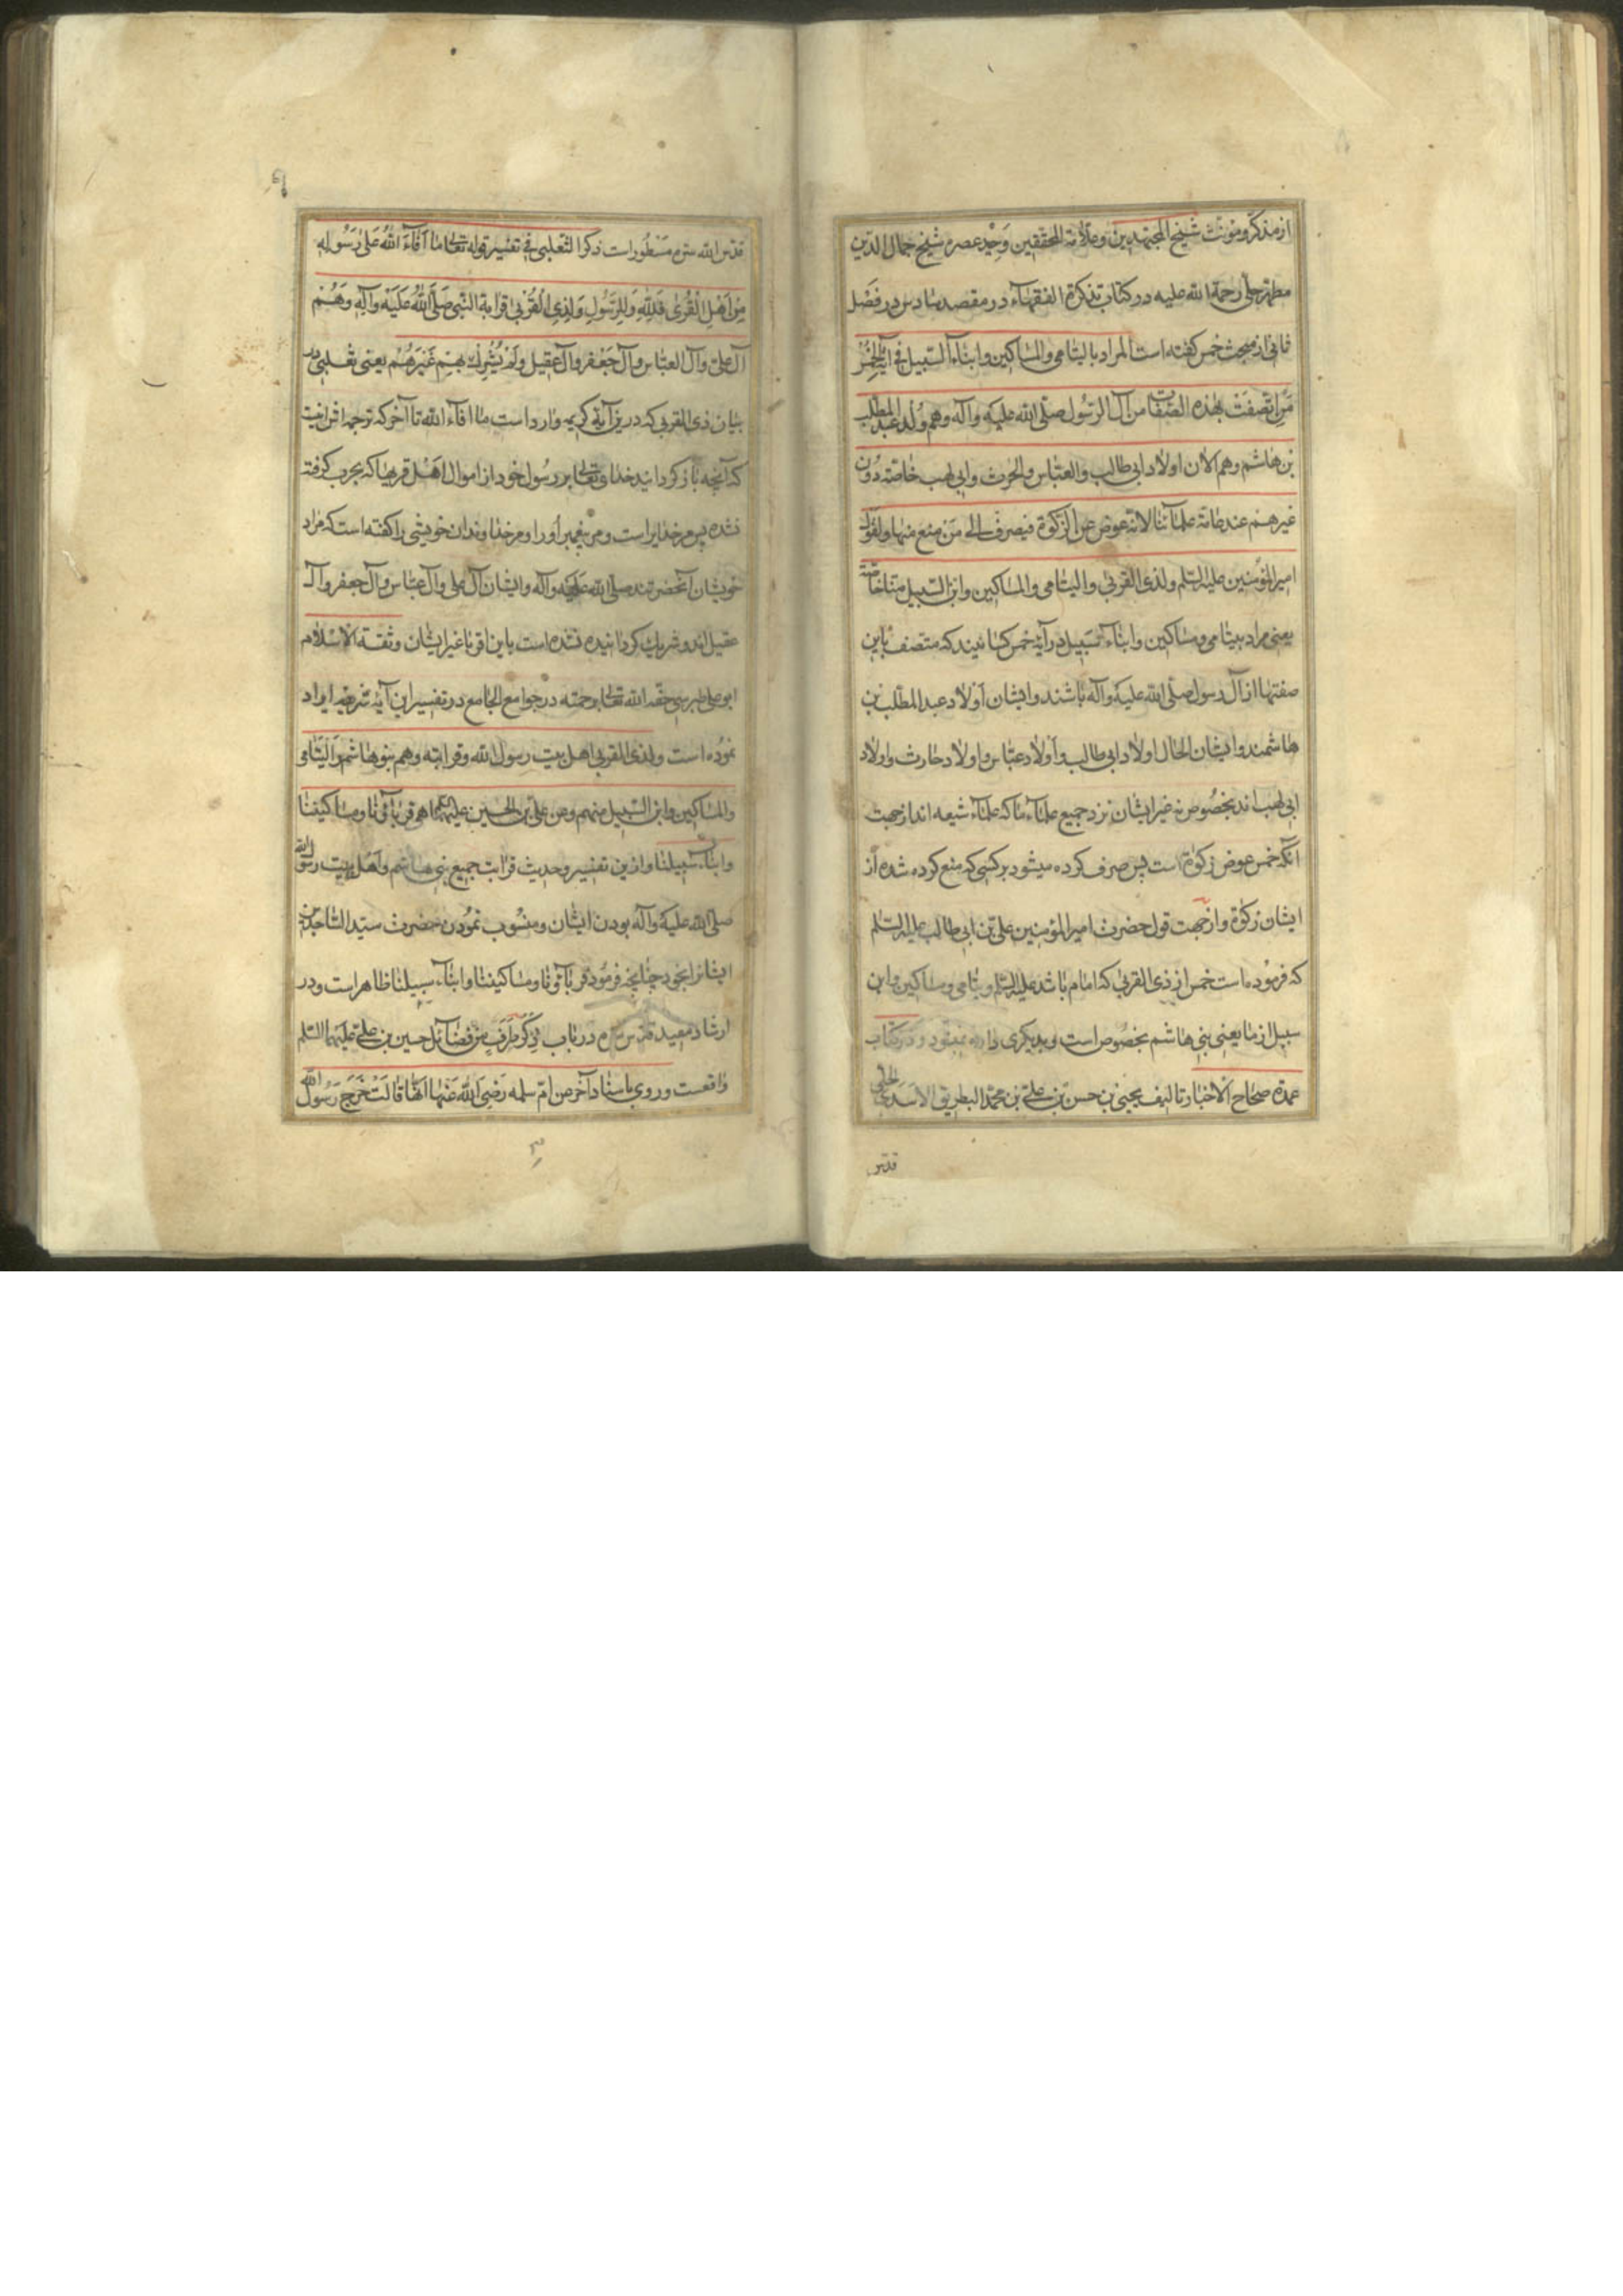 از مذکر و مؤنث شیخ المجتهدین و علامة المحققین وحید عصره شیخ جمال الدین
مطهر حلی رحمة الله علیه در کتاب تذکرة الفقهآء در مقصد سادس در فصل
ثانی از مبحث خمس گفته است المراد بالیتامی والمساکین وابنآء السبیل فی آیة الخمس
من اتصفت بهذه الصفات من آل الرسول صلی الله علیه وآله وهم ولد عبد المطلب
بن هاشم وهم الان اولاد ابی طالب والعباس والحرث وابی لهب خاصة دون
غیرهم عند عامة علمآئنا لانه عوض عن الزکوة فیصرف الی من منع منها ولقول
امیر المؤمنین علیه السلم ولذی القربی والیتامی والمساکین وابن السبیل منا خاصة
یعنی مراد بیتامی ومساکین وابنآء سبیل در آیهٔ خمس کسانیند که متصف باین
صفتها از آل رسول صلی الله علیه وآله باشند وایشان اولاد عبد المطلب بن
هاشمند وایشان الحال اولاد ابی طالب واولاد عباس واولاد حارث واولاد
ابی لهب اند بخصوص نه غیر ایشان نزد جمیع علمآء ما که علمآء شیعه اند از جهت
آنکه خمس عوض زکوة است پس صرف کرده میشود بر کسی که منع کرده شده از
ایشان زکوة واز جهت قول حضرت امیر المؤمنین علی بن ابی طالب علیه السلم
که فرموده است خمس از ذی القربی که امام باشد علیه السلم ویتامی ومساکین وابن
سبیل از ما یعنی بنی هاشم بخصوص است وبدیکری داده نمیشود ودر کتاب
عمدة صحاح الاخبار تالیف یحیی بن حسن بن علی بن محمد البطریق الاسدی الحلی
قدس
قدس الله سره مسطور است ذکر الثعلبی فی تفسیر قوله تعالی ما افآء الله علی رسوله
من اهل القری فلله وللرسول ولذی القربی قرابة النبی صلی الله علیه وآله وهم
آل علی وآل العباس وآل جعفر وآل عقیل ولم یشرک بهم غیرهم یعنی ثعلبی در
بیان ذی القربی که درین آیهٔ کریمه وارد است ما افآء الله تا آخر که ترجمه اش اینست
که آنچه باز کردانید خدای تعالی بر رسول خود از اموال اهل قریها که بحرب کرفته
نشده پس مر خدایراست ومر پیغمبر اورا ومر خداوندان خویشی را کفته است که مراد
خویشان آنحضرتند صلی الله علیه وآله وایشان آل علی وآل عباس وآل جعفر وآل
عقیل اند وشریک کردانیده نشده است باین اقربا غیر ایشان وثقة الاسلام
ابو علی طبرسی حفه الله تعالی برحمته در جوامع الجامع در تفسیر این آیهٔ شریفه ایراد
نموده است ولذی القربی اهل بیت رسول الله وقرابته وهم بنو هاشم والیتامی
والمساکین وابن السبیل منهم وعن علی بن الحسین علیهما السلم هی قربآؤنا ومساکیننا
وابنآء سبیلنا وازین تفسیر وحدیث قرابت جمیع بنی هاشم واهل بیت رسول الله
صلی الله علیه وآله بودن ایشان ومنسوب نمودن حضرت سید الساجدین
ایشانرا بخود چنانچه فرمود قربآؤنا ومساکیننا وابنآء سبیلنا ظاهر است ودر
ارشاد مفید قدس سره در باب ذکر طرف من فضآئل حسین بن علی علیهما السلم
واقعست وروی باسناد آخر عن ام سلمه رضی الله عنها انها قالت خرج رسول الله